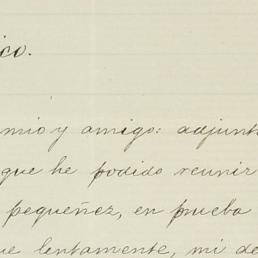 ico.
mio y amigo: adjunt
que he podido reunir
pequeñez, en prueba
ue lentamente, mi de